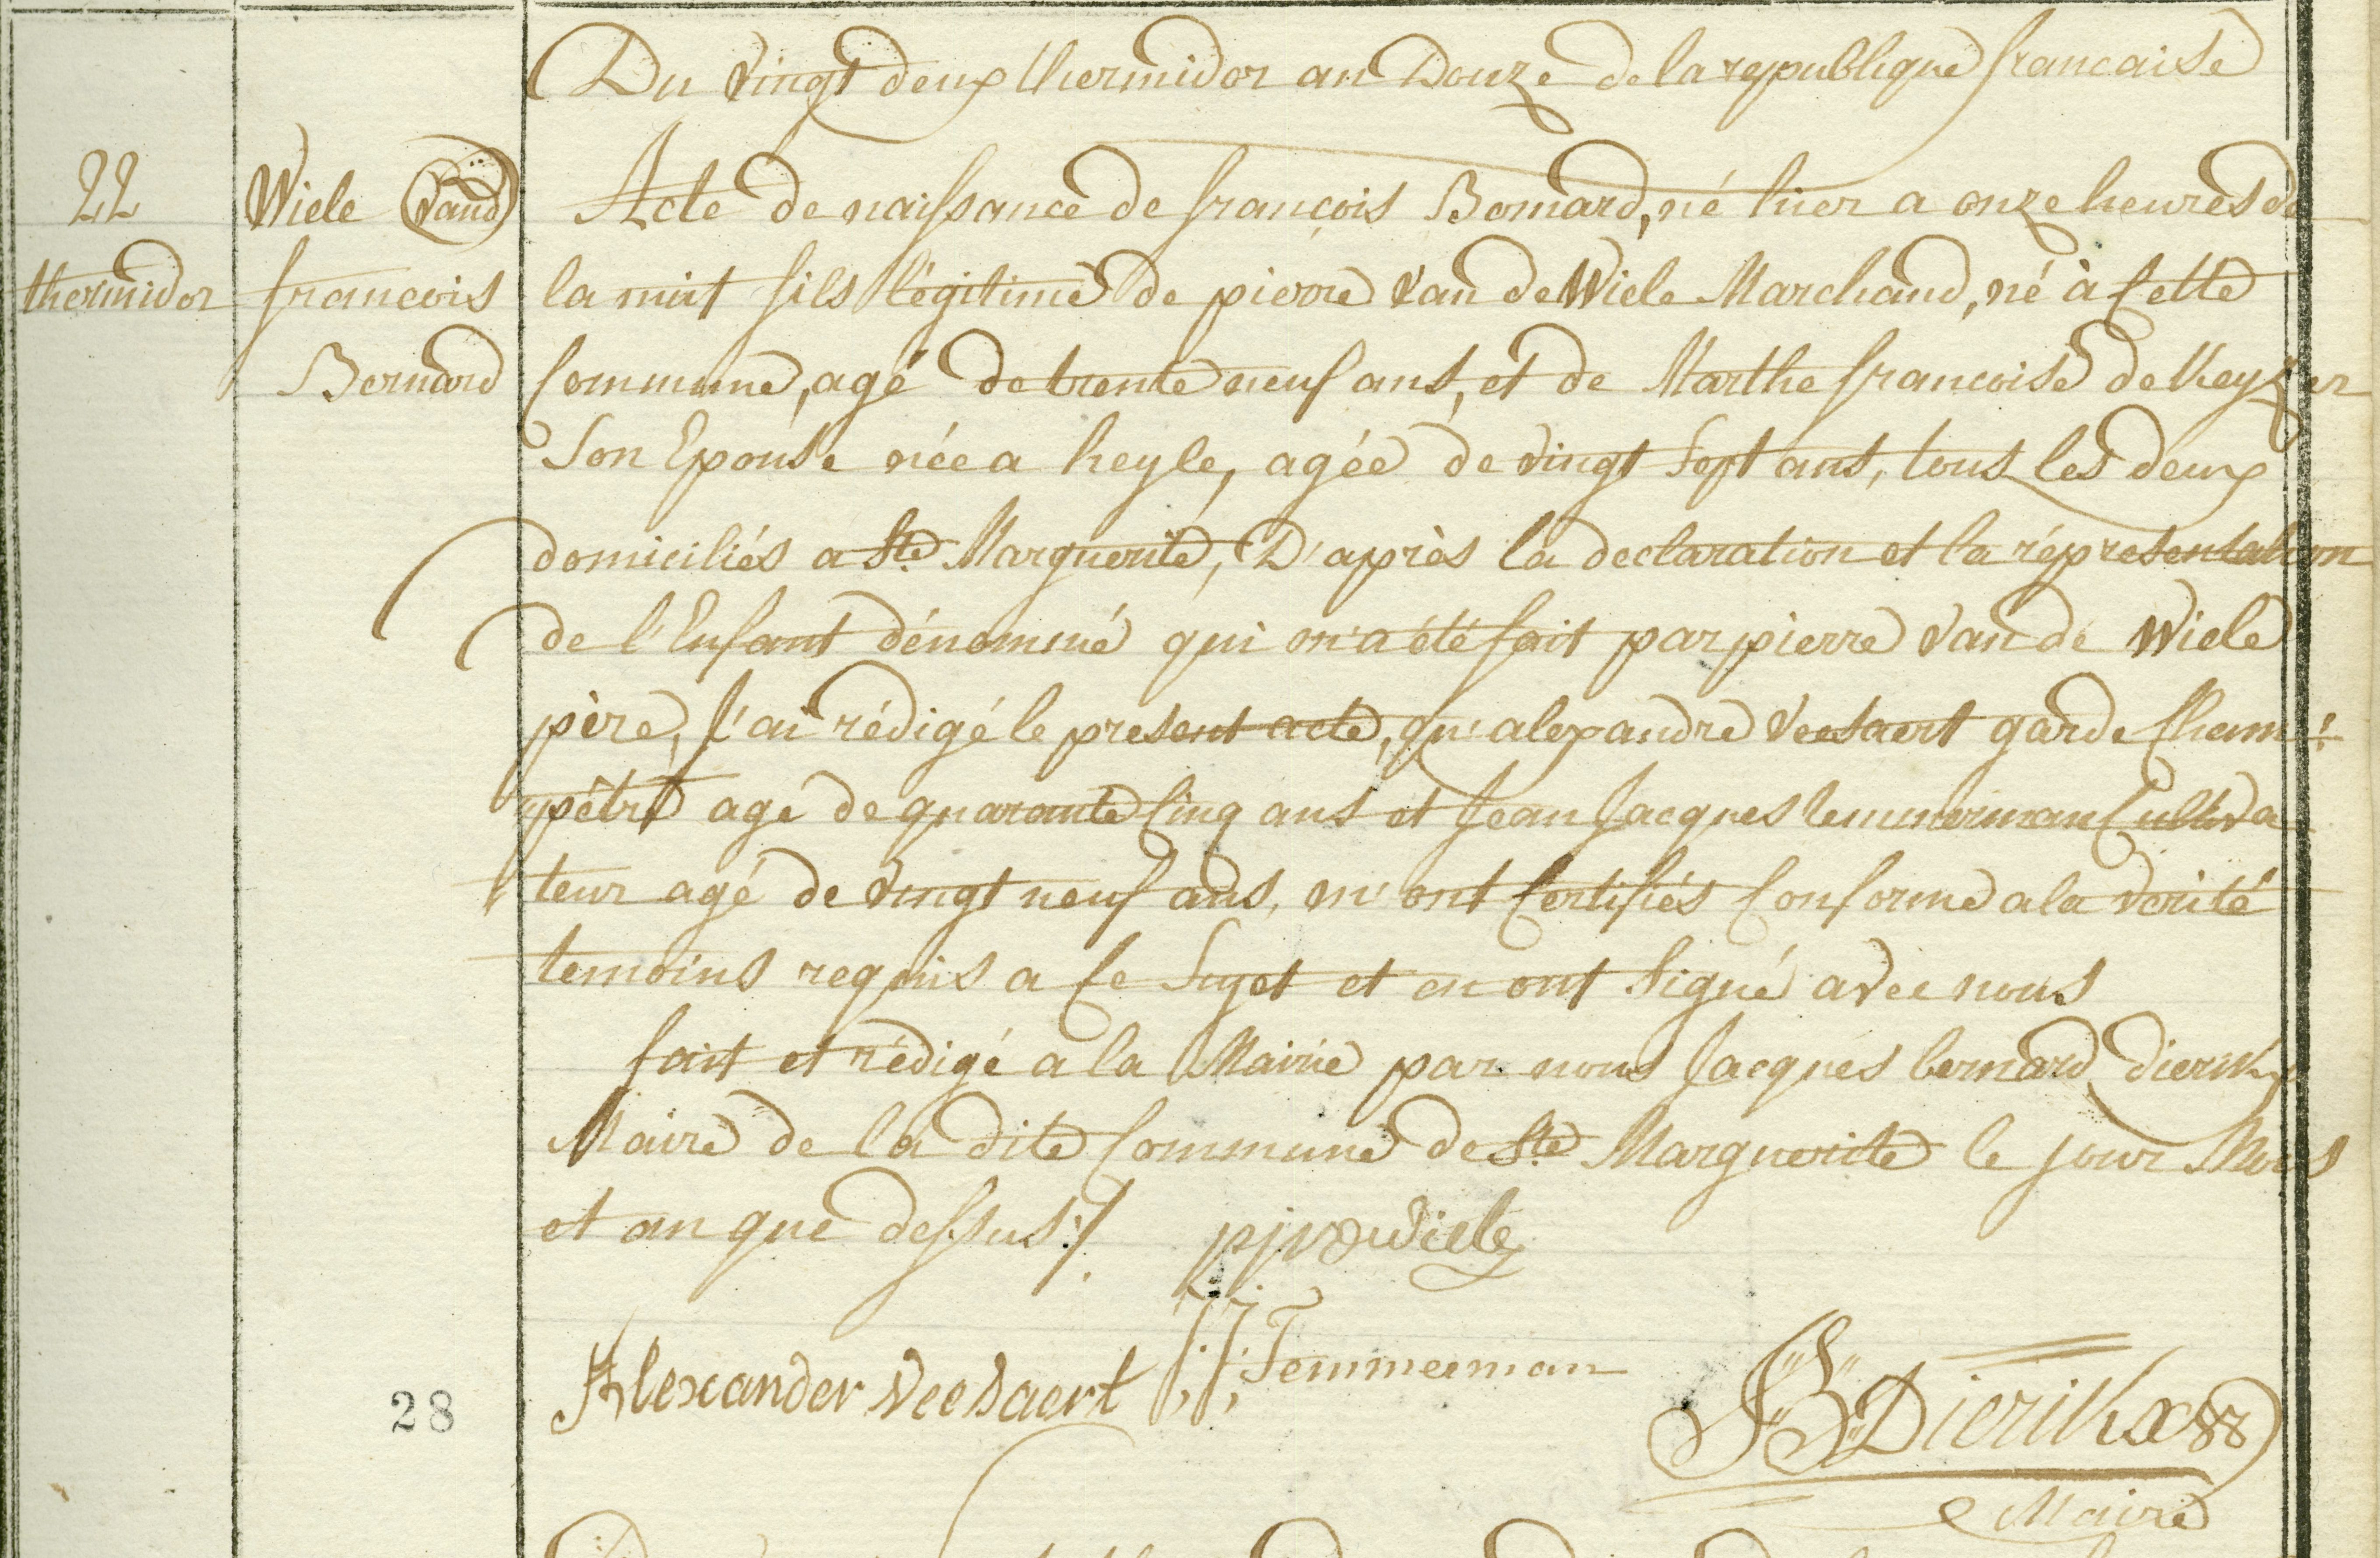 Du vingt deux thermidor an Douze de la republique francaise
22
thermidor
Wiele Vand
francois
Bernard
Acte de naissance de françois Bernard, né hier a onze heures de
la nuit fils légitime de pierre Van de Wiele Marchand, né à Cette
Commune, agé de trente neuf ans, et de Marthe francoise de Keyzer
Son Epouse née a heyle, agée de vingt Sept ans, tous les deux
domiciliés a Ste Marguerite, D'après la declaration et la répresentation
de l'Enfant dénommé qui m'a été fait par pierre Van de Wiele
père, J'ai rédigé le present acte, qu'alexandre Veesaert garde Cham:
pêtre agé de quarante Cinq ans et Jean Jacques temmerman Cultiva
teur agé de Vingt neuf ans, m'ont Certifiés Conforme a la verité
temoins requis a Ce Sujet et en ont Signé avec nous
fait et rédigé a la Mairie par nous Jacques bernard dierikx
Maire de la dite Commune de Ste Marguerite le jour Mois
et an que dessus ./.
pjvdwiele
Alexander Veesaert
J: J: Temmerman
JB Dierikx
Maire
28